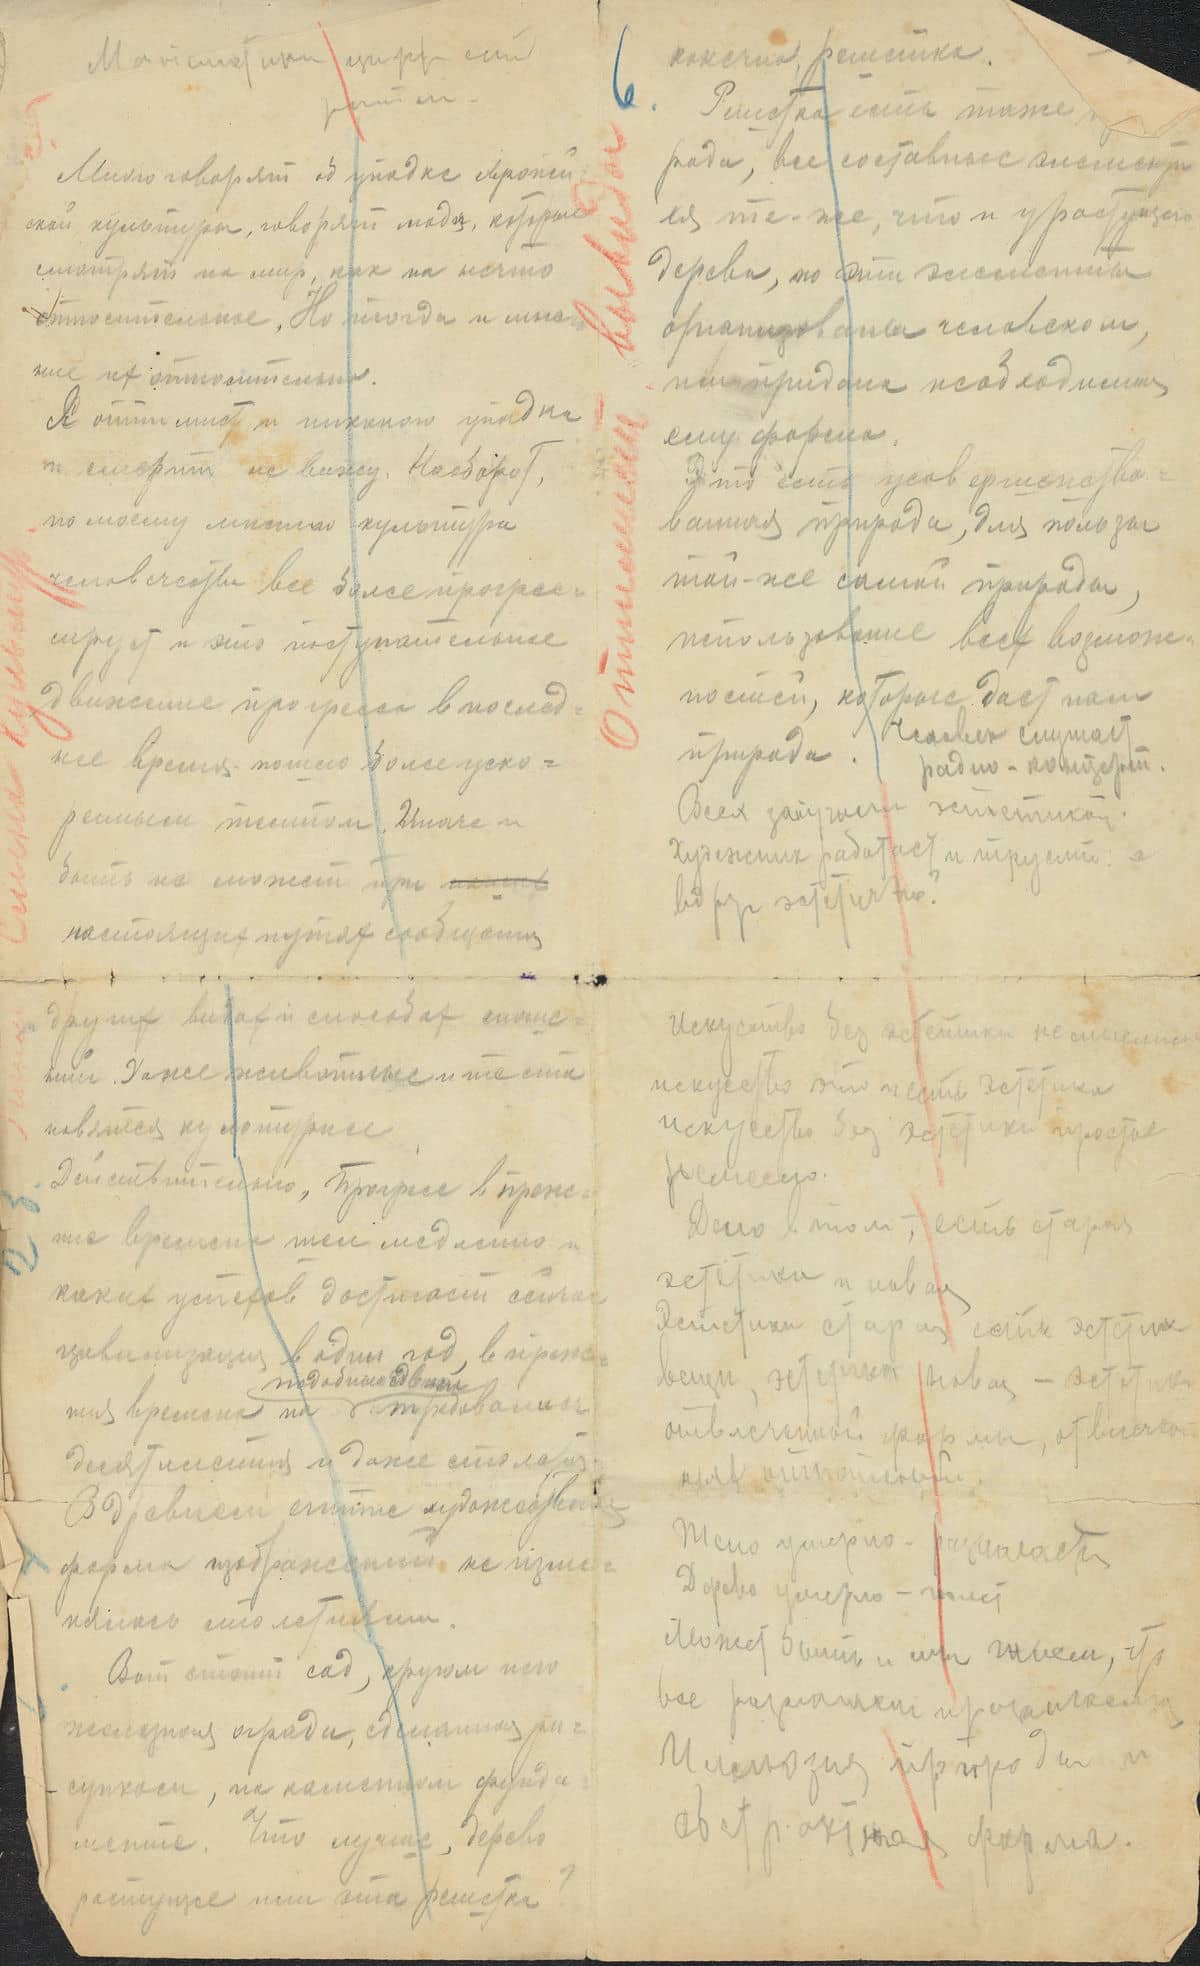 Много говорят об упадке европей-
ской культуры, говорят люди, которые
смотрят на мир, как на нечто
относительное. Но тогда и мне-
ние их относительно.
Я оптимист и никакого упадка
и смерти не вижу. Наоборот,
по моему мнению культура
человечества все более прогрес-
сирует и это поступательное
движение прогресса в послед-
нее время пошло более уско-
ренным темпом. Иначе и
быть не может при
настоящих путях сообщения
других видах и способах сноше-
ний. Даже животные и те ста
новятся культурнее
Действительно, прогресс в преж-
ние времена шел медленно и
каких успехов достигает сейчас
цивилизация в один год, в преж-
подобные сдвиги
ния времена на требовались
десятилетия и даже столетия.
В древнем египте художественная
форма изображений не изме-
нялась столетиями.
Вот стоит сад, кругом него
железная ограда, сделанная ри-
сунком, на каменном фунда-
менте. Что лучше, дерево
растущее или эта решетка?
6.
конечно, решетка.
Решетка есть таже
рода, все составные элементы
ея те-же, что и у растущего
дерева, но эти элементы
организованы человеком,
им придана необходимая
ему форма.
Это есть усовершенство-
ванная природа, для пользы
той-же самой природы,
использование всех возмож-
ностей, которые дает нам
природа.
Человек слушает
радио-концерт.
Всех запугали эстетикой.
Художник работает и трусит: а
вдруг эстетично?
Искусство без эстетики не мыслимо
искусство это и есть эстетика
искусство без эстетики простое
ремесло.
Дело в том, есть старая
эстетика и новая
Эстетика старая есть эстетика
вещи, эстетика новая – эстетика
отвлеченной формы, отвлечен
ных отношений.
Тело умерло – разлагается
Дерево умерло – гниет
Может быть и мы тлеем, что
все размышляем и
Иллюзия природы и
абстрактная форма.
Отшельник выводы